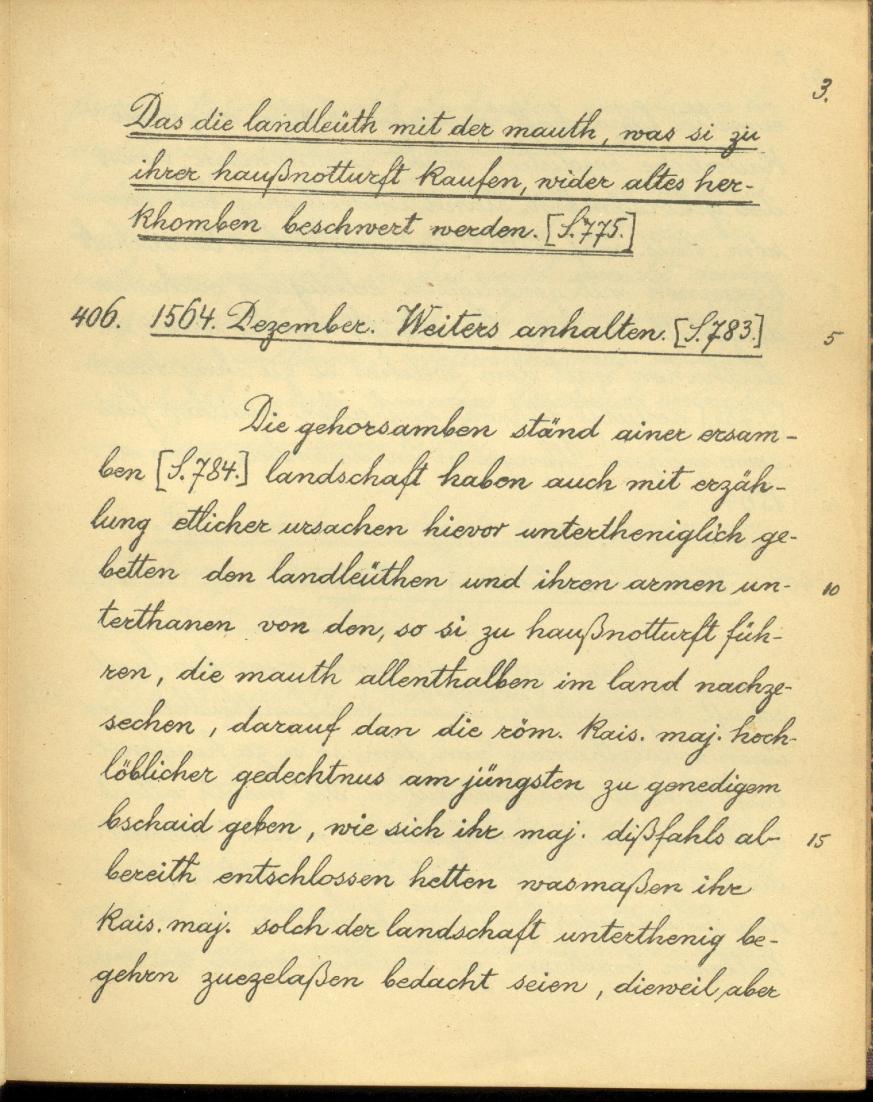 3.
Das die landleüth mit der mauth, was si zu
ihrer haußnotturft kaufen, wider altes her-
khomben beschwert werden. [S.775.]
406. 1564. Dezember. Weiters anhalten. [S.783.]
5
Die gehorsamben ständ ainer ersam-
ben [S.784.] landschaft haben auch mit erzäh-
lung etlicher ursachen hievor untertheniglich ge-
betten den landleüthen und ihren armen un-
10
terthanen von den, so si zu haußnotturft füh-
ren, die mauth allenthalben im land nachze-
sechen, darauf dan die röm. kais. maj. hoch-
löblicher gedechtnus am jüngsten zu genedigem
bschaid geben, wie sich ihr maj. dißfahls al-
15
bereith entschlossen hetten wasmaßen ihr
kais. maj. solch der landschaft unterthenig be-
gehrn zuezelaßen bedacht seien, dieweil aber